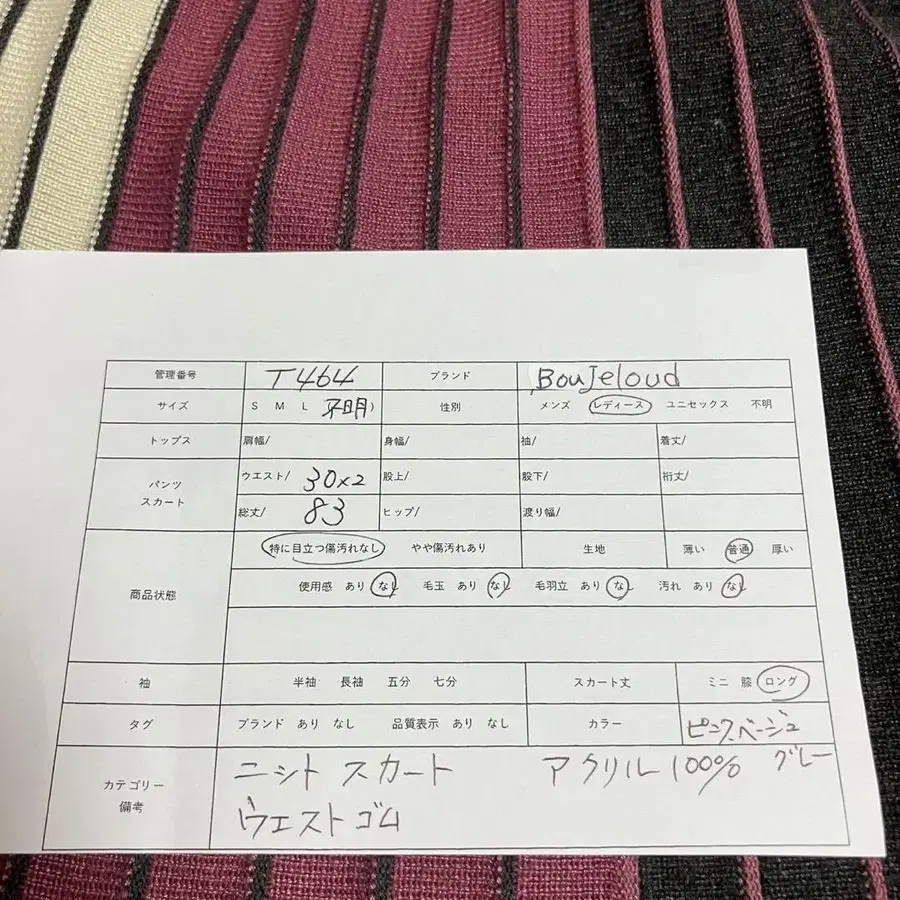 管理番号 T464 ブランド Boujeloud
サイズ S M L 不明) 性別 メンズ レディース ユニセックス 不明
トップス 肩幅/ 身幅/ 袖/ 着丈/
パンツ スカート ウエスト/ 30×2 股上/ 股下/ 裄丈/
総丈/ 83 ヒップ/ 渡り幅/
商品状態 特に目立つ傷汚れなし やや傷汚れあり 生地 薄い 普通 厚い
使用感 あり なし 毛玉 あり なし 毛羽立 あり なし 汚れ あり なし
袖 半袖 長袖 五分 七分 スカート丈 ミニ 膝 ロング
タグ ブランド あり なし 品質表示 あり なし カラー ピンク.ベージュ
グレー
カテゴリー 備考 ニット スカート アクリル100%
ウエストゴム